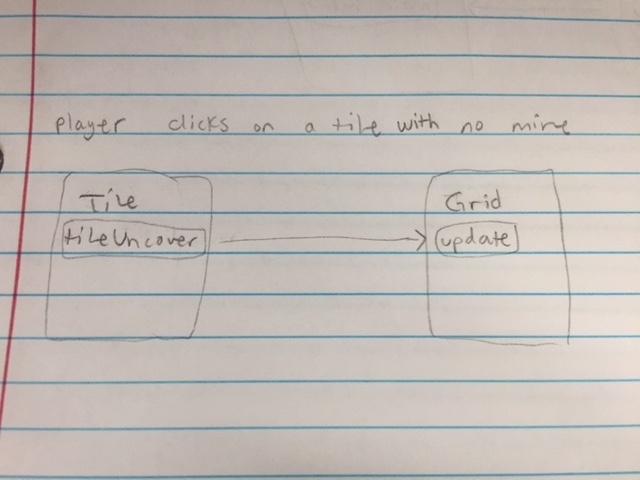 player clicks on a tile with no mine
Tile
tileUncover
Grid
update